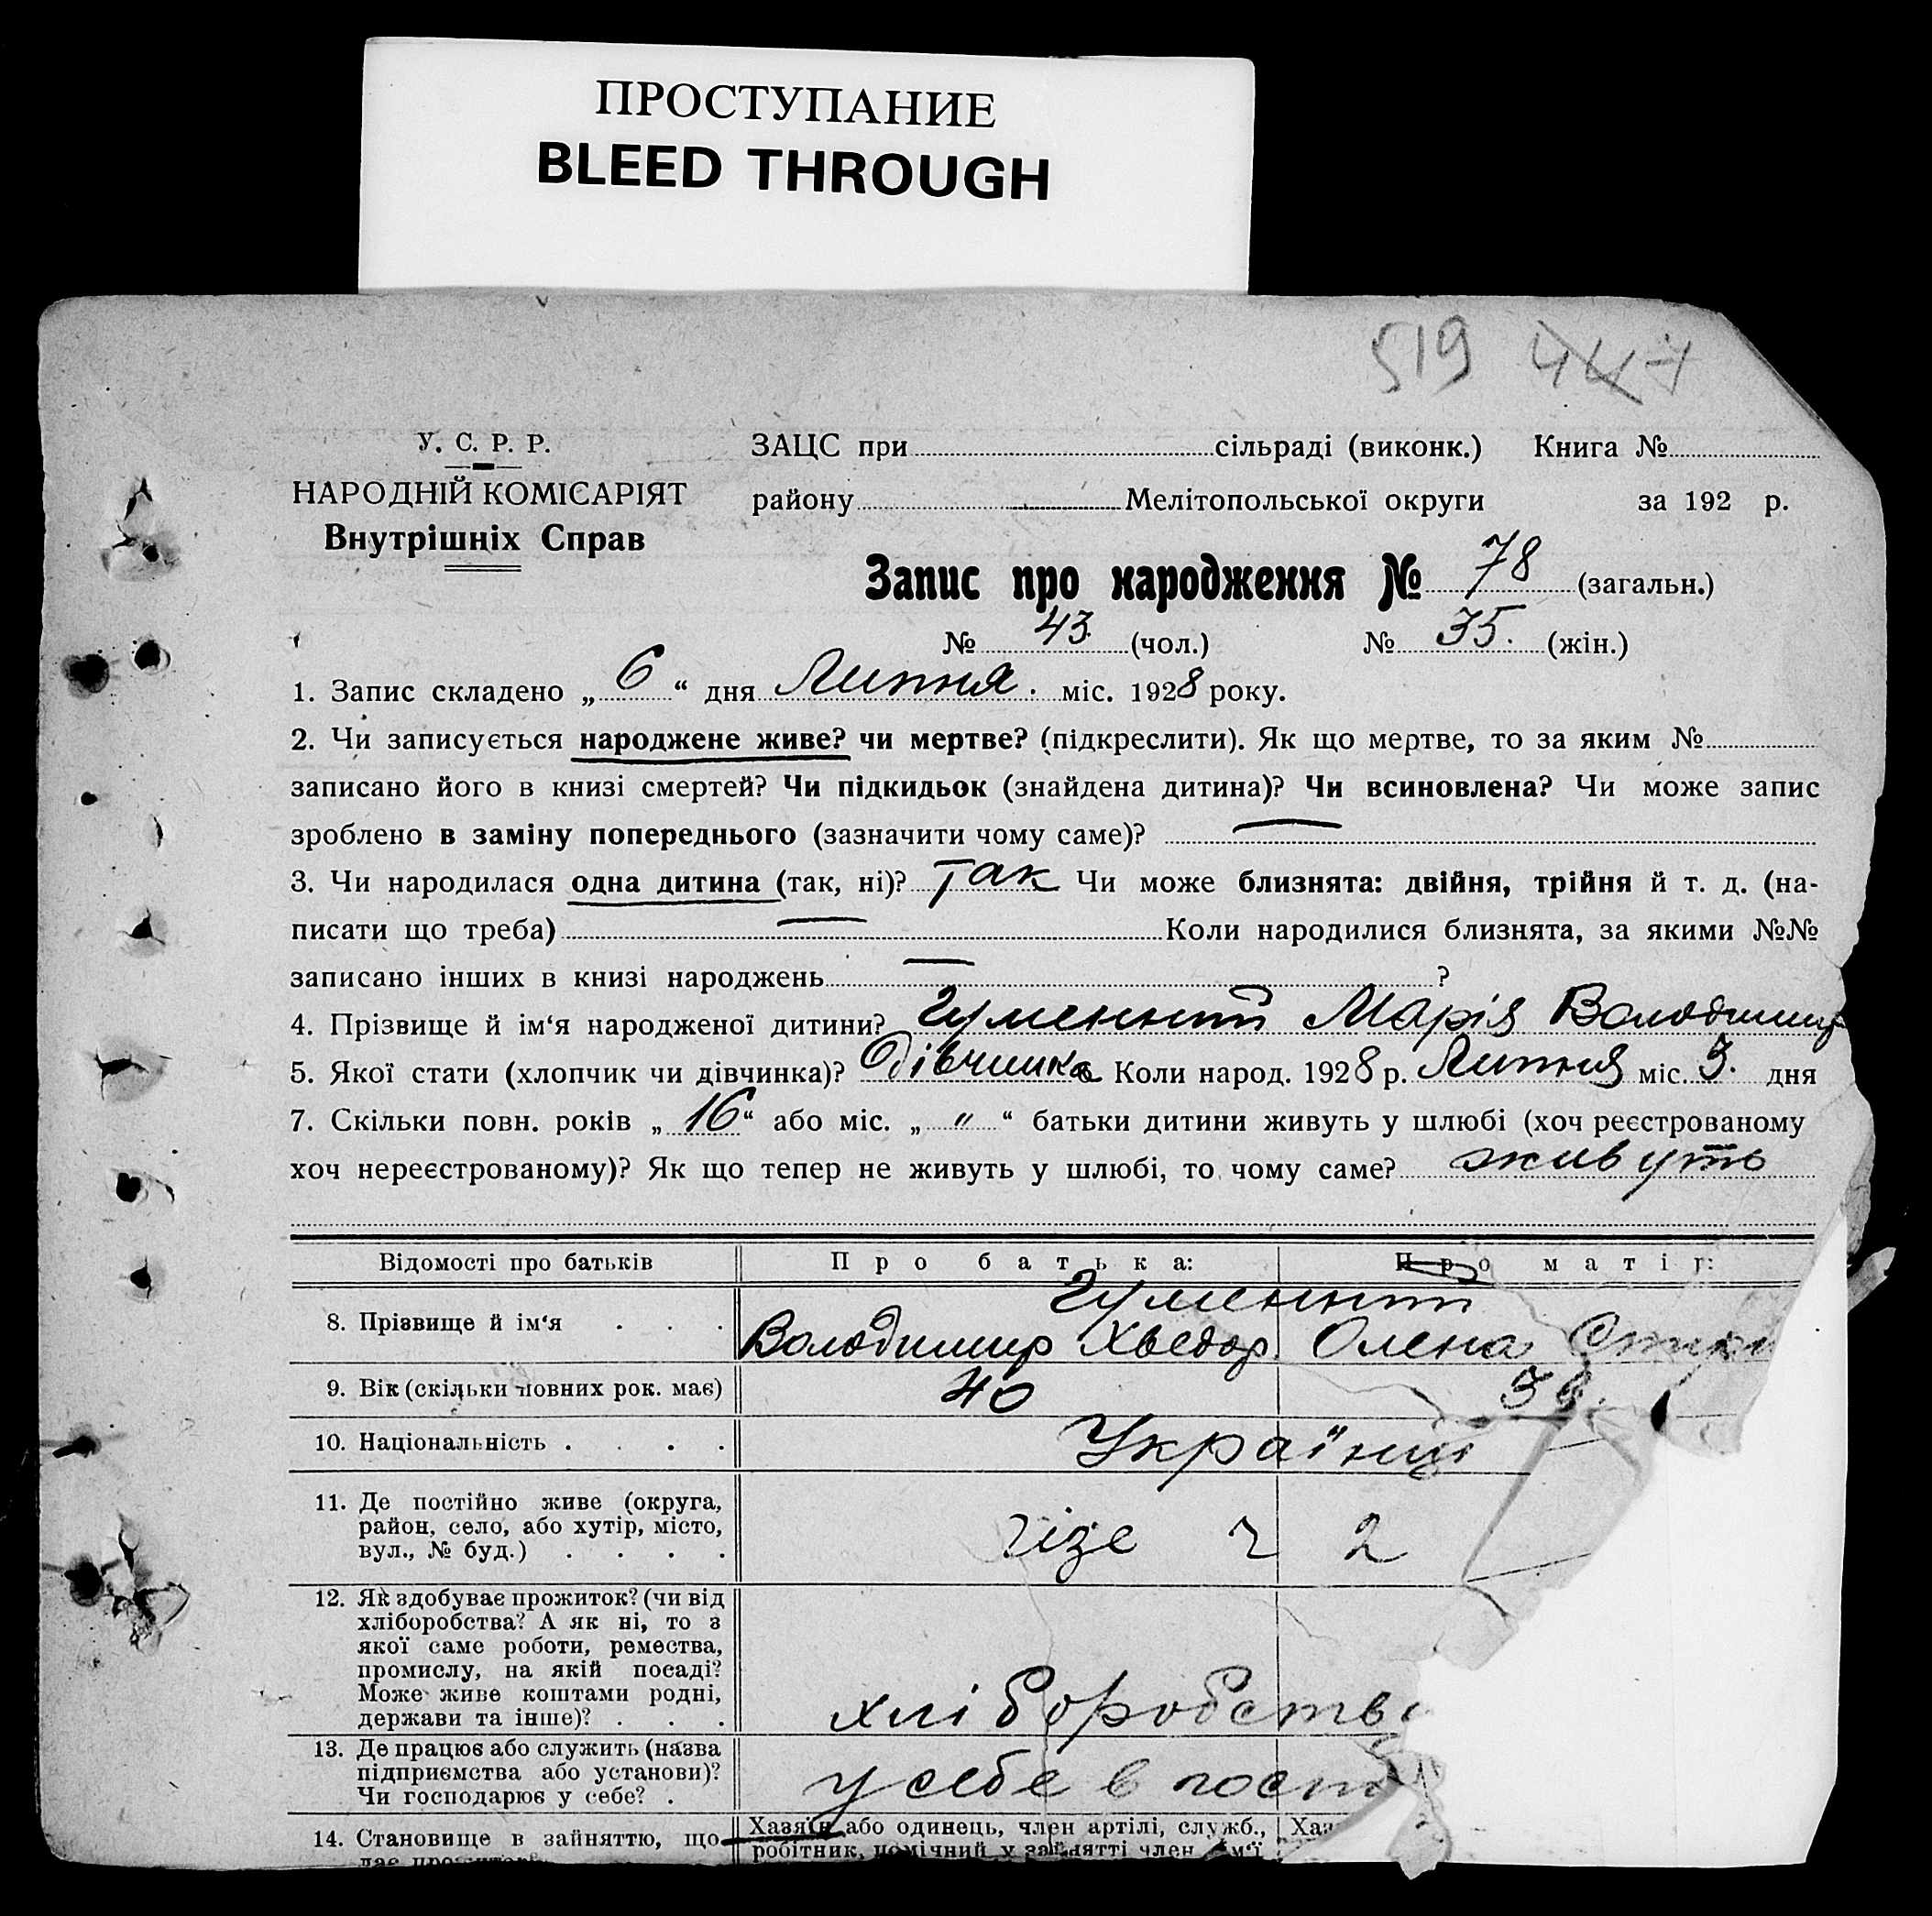 ПРОСТУПАНИЕ
BLEED THROUGH
519 447
У. С. Р. Р.
НАРОДНІЙ КОМІСАРІЯТ
Внутрішніх Справ
ЗАЦС при сільраді (виконк.) Книга №
району Мелітопольської округи за 192 р.
Запис про народження № 78 (загальн.)
№ 43 (чол.) № 35. (жін.)
1. Запис складено „ 6 “ дня Липня. міс. 1928 року.
2. Чи записується народжене живе? чи мертве? (підкреслити). Як що мертве, то за яким №
записано його в книзі смертей? Чи підкидьок (знайдена дитина)? Чи всиновлена? Чи може запис
зроблено в заміну попереднього (зазначити чому саме)? —
3. Чи народилася одна дитина (так, ні)? Так Чи може близнята: двійня, трійня й т. д. (на-
писати що треба) — Коли народилися близнята, за якими №№
записано інших в книзі народжень — ?
4. Прізвище й ім‘я народженої дитини? Гуменний Марія Володимир
5. Якої стати (хлопчик чи дівчинка)? дівчинка Коли народ. 1928 р. Липня міс. 3. дня
7. Скільки повн. років „ 16 “ або міс. „ " “ батьки дитини живуть у шлюбі (хоч реєстрованому
хоч нереєстрованому)? Як що тепер не живуть у шлюбі, то чому саме? живуть
Відомості про батьків Про батька: Про матір:
Гуменний
8. Прізвище й ім‘я . . . Володимир Хведор. Олена
9. Вік (скільки повних рок. має) 40
10. Національність . . . . Українці
11. Де постійно живе (округа,
район, село, або хутір, місто,
вул., № буд.) . . . . 2
12. Як здобуває прожиток? (чи від
хліборобства? А як ні, то з
якої саме роботи, ремества,
промислу, на якій посаді?
Може живе коштами родні,
держави та інше)? . . . хліборобств
13. Де працює або служить (назва
підприємства або установи)?
Чи господарює у себе? . у себе в госп
14. Становище в зайняттю, що Хазяїн або одинець, член артілі, служб., Хаз
робітник, помічний у зайнятті член сім‘ї